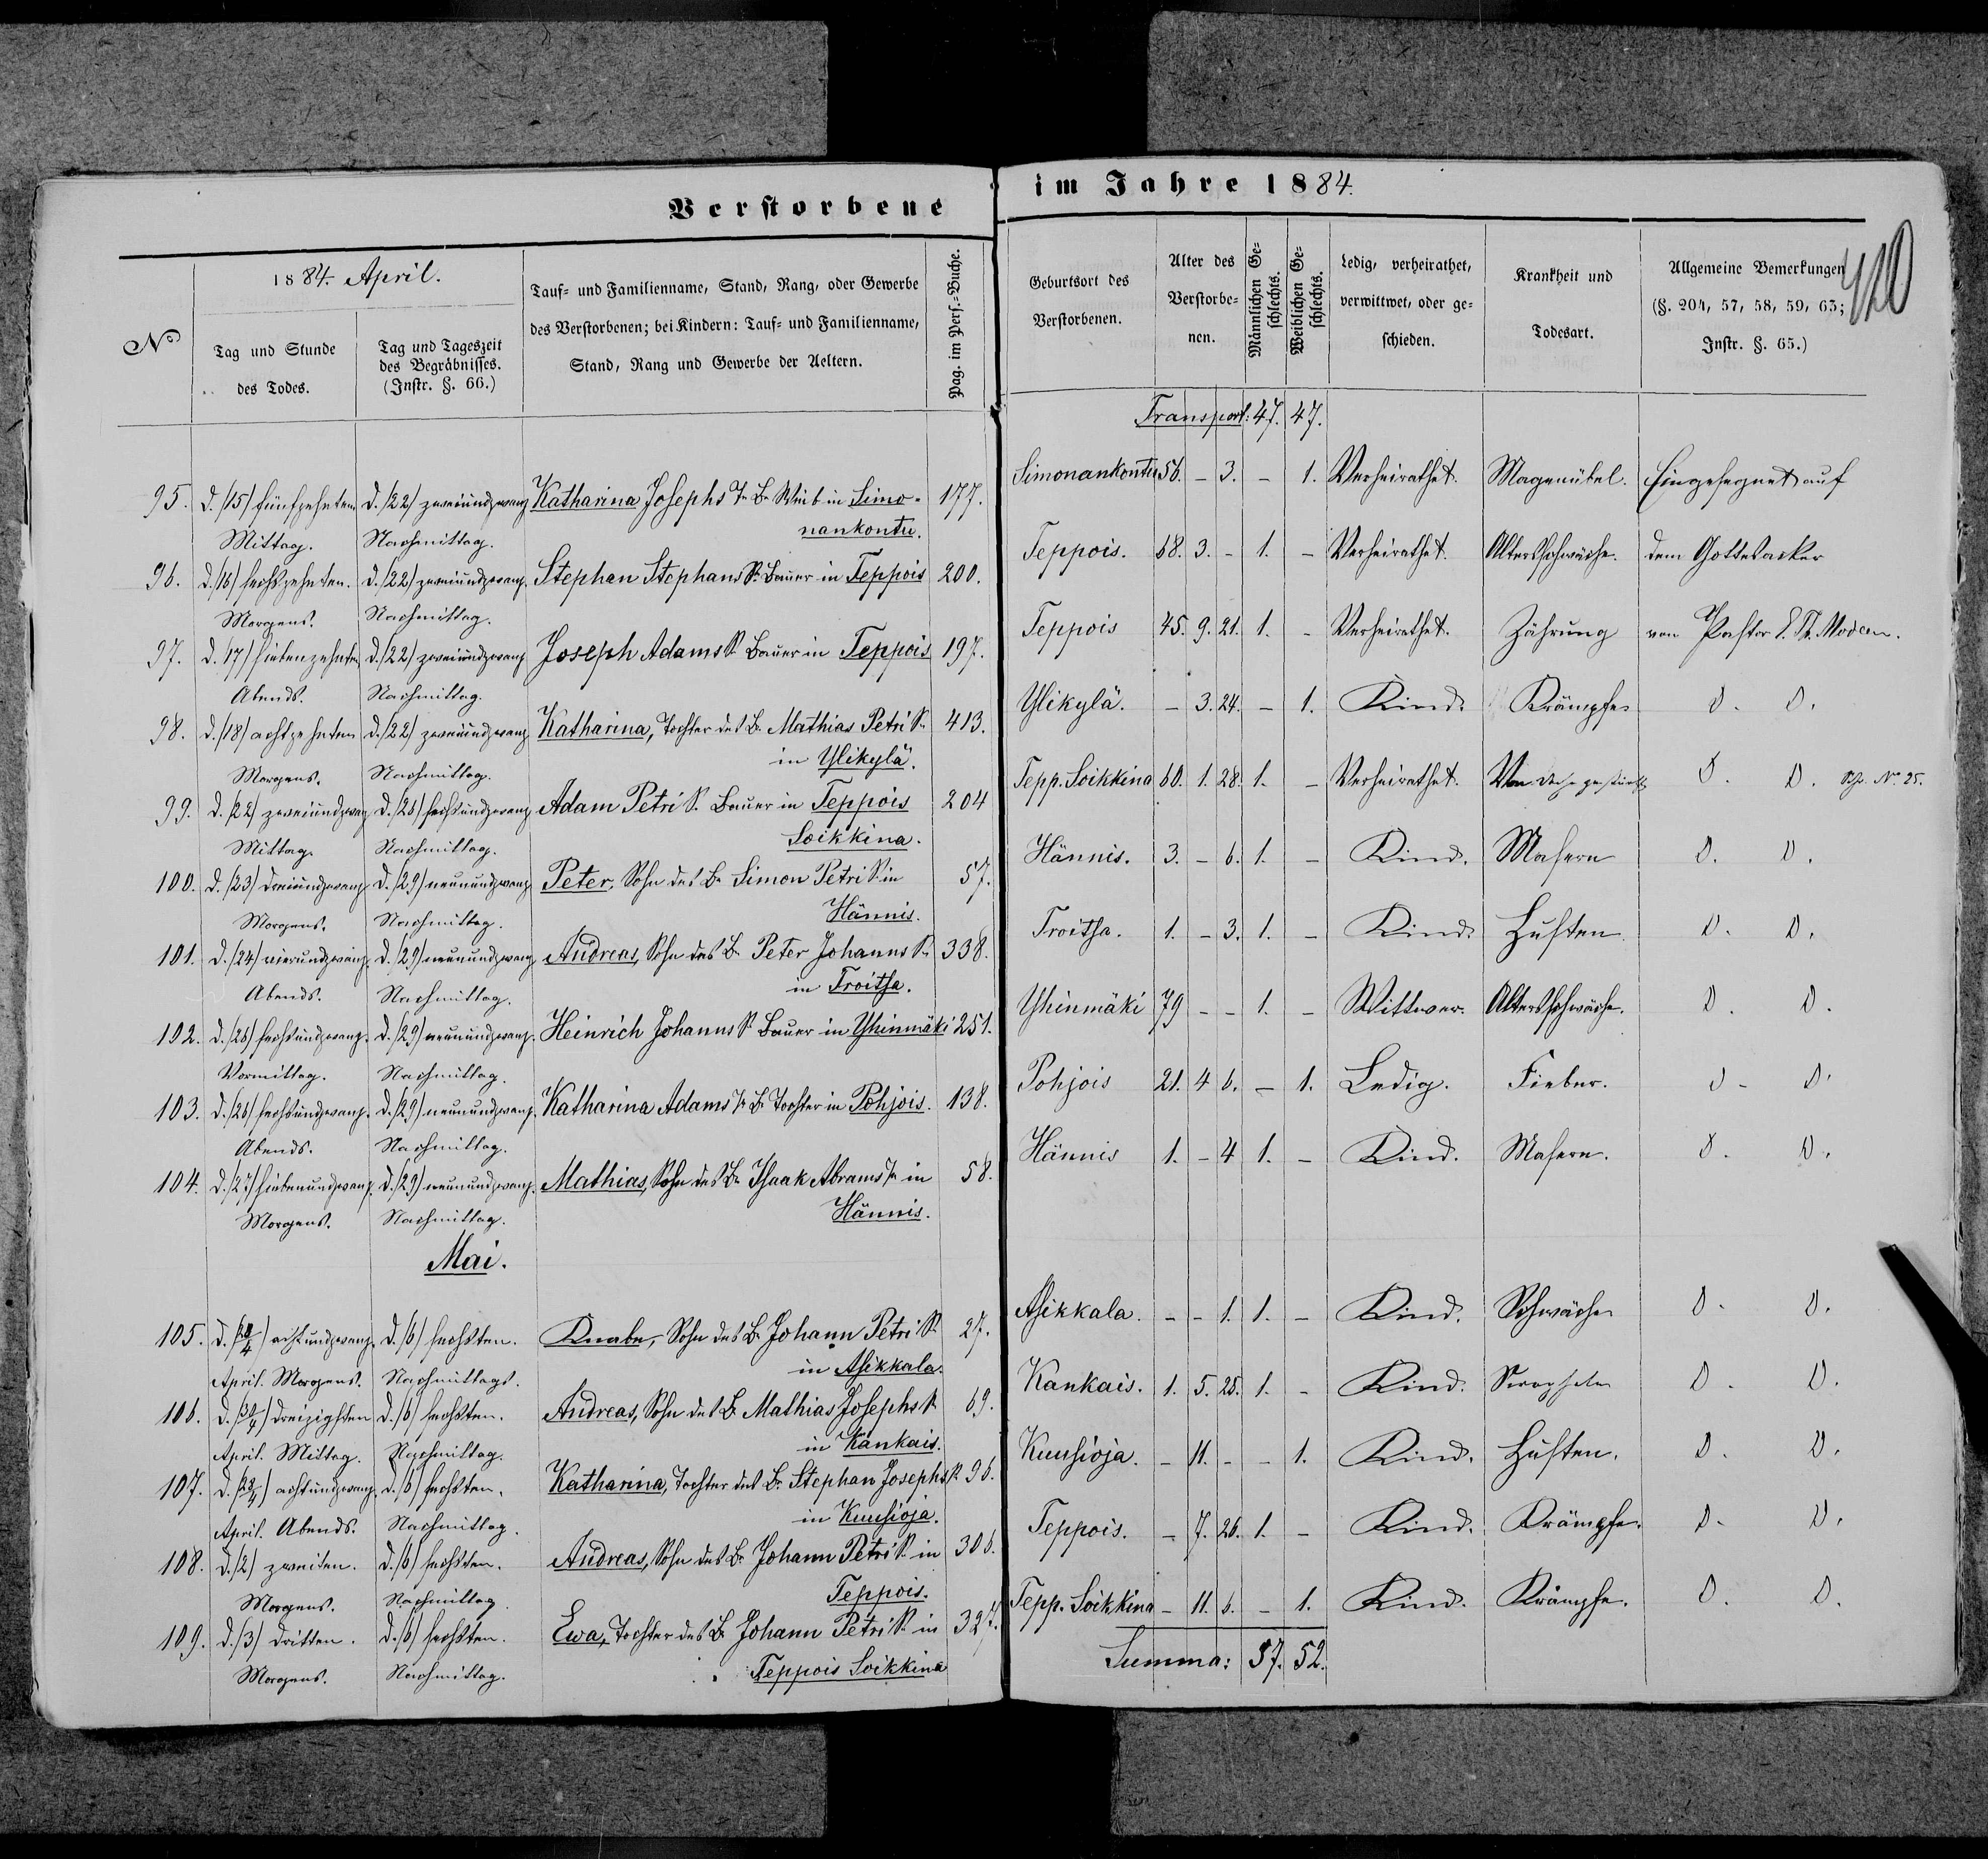 Verstorbene im Jahre 1884.
420
1884. April.
No
Tag und Stunde des Todes.
Tag und Tageszeit des Begräbnisses. (Instr. §. 66.)
Tauf- und Familienname, Stand, Rang, oder Gewerbe des Verstorbenen; bei Kindern: Tauf- und Familienname, Stand, Rang und Gewerbe der Aeltern.
Pag. im Pers.-Buche.
Geburtsort des Verstorbenen.
Alter des Verstorbenen.
Männlichen Geschlechts.
Weiblichen Geschlechts.
Ledig, verheirathet, verwittwet, oder geschieden.
Krankheit und Todesart.
Allgemeine Bemerkungen (§. 204, 57, 58, 59, 63; Instr. §. 65.)
Transport: 47. 47.
95. d. /15/ fünfzehnten d. /22/ zweiundzwanz Katharina Josephs T. B. Weib in Simo- 177. Simonankontu 56. - 3. - 1. Verheirathet. Magenübel. Eingesegnet auf
Mittag. Nachmittag. nankontu.
96. d. /16/ sechszehnten. d. /22/ zweiundzwanz. Stephan Stephans S. Bauer in Teppois 200. Teppois. 68. 3. - 1. - Verheirathet. Altersschwäche. dem Gottesacker
Morgens. Nachmittag.
97. d. 17/ siebenzehnten d. /22/ zweiundzwanz Joseph Adams S. Bauer in Teppois 197. Teppois 45. 9. 21. 1. - Verheirathet. Zährung von Pastor
Abends. Nachmittag.
98. d. /18/ achtzehnten d. /22/ zweiundzwanz Katharina, Tochter des B. Mathias Petri S. 413. Ylikylä. - 3. 24. - 1. Kind. Krämpfe D. D.
Morgens. Nachmittag. in Ylikylä.
99. d. /22/ zweiundzwanz d. /26/ sechsundzwanz Adam Petri S. Bauer in Teppois 204 Tepp. Soikkina 60. 1. 28. 1. - Verheirathet. D. D. No. 25.
Mittag. Nachmittag. Soikkina.
100. d. /23/ dreiundzwanz d. /29/ neunundzwanz Peter, Sohn des B. Simon Petri S. in 57. Hännis. 3. - 6. 1. - Kind. Masern D. D.
Morgens. Nachmittag. Hännis.
101. d. /24/ vierundzwanz. d. /29/ neunundzwanz Andreas, Sohn des B. Peter Johanns S. 338. Troitsa. 1. - 3. 1. - Kind. Husten D. D.
Abends. Nachmittag. in Troitsa.
102. d. /26/ sechsundzwanz. d. /29/ neunundzwanz. Heinrich Johanns S. Bauer in Yhinmäki 251. Yhinmäki 79 - - 1. - Wittwer. Altersschwäche. D. D.
Vormittag. Nachmittag.
103. d. /26/ sechsundzwanz. d. /29/ neunundzwanz. Katharina Adams T. B. Tochter in Pohjois. 138. Pohjois 21. 4 6. - 1. Ledig. Fieber. D. D.
Abends. Nachmittag.
104. d. /27/ siebenundzwanz. d. /29/ neunundzwanz. Mathias, Sohn des B. Isaak Abrams S. in 58. Hännis 1. - 4 1. - Kind. Masern. D. D.
Morgens. Nachmittag. Hännis.
Mai.
105. d. /28/4/ achtundzwanz. d. /6/ sechsten. Knabe, Sohn des B. Johann Petri S. 27. Asikkala. - - 1. 1. - Kind. Schwäche D. D.
April. Morgens. Nachmittags. in Asikkala.
106. d. /30/4/ dreizigsten d. /6/ sechsten. Andreas, Sohn des B. Mathias Josephs S. 69. Kankais. 1. 5. 25. 1. - Kind. D. D.
April. Mittag. Nachmittag. in Kankais.
107. d. /28/4/ achtundzwanz. d. /6/ sechsten. Katharina, Tochter des B. Stephan Josephs S. 96. Kuusioja. - 11. - - 1. Kind. Husten. D. D.
April. Abends. Nachmittag. in Kuusioja.
108. d. /2/ zweiten. d. /6/ sechsten. Andreas, Sohn des B. Johann Petri S. in 306. Teppois. - 7. 26. 1. - Kind. Krämpfe. D. D.
Morgens. Nachmittag. Teppois.
109. d. /3/ dritten. d. /6/ sechsten. Ewa, Tochter des B. Johann Petri S. in 327. Tepp. Soikkina - 11. 6. - 1. Kind. Krämpfe. D. D.
Morgens. Nachmittag. Teppois Soikkina
Summa: 57. 52.